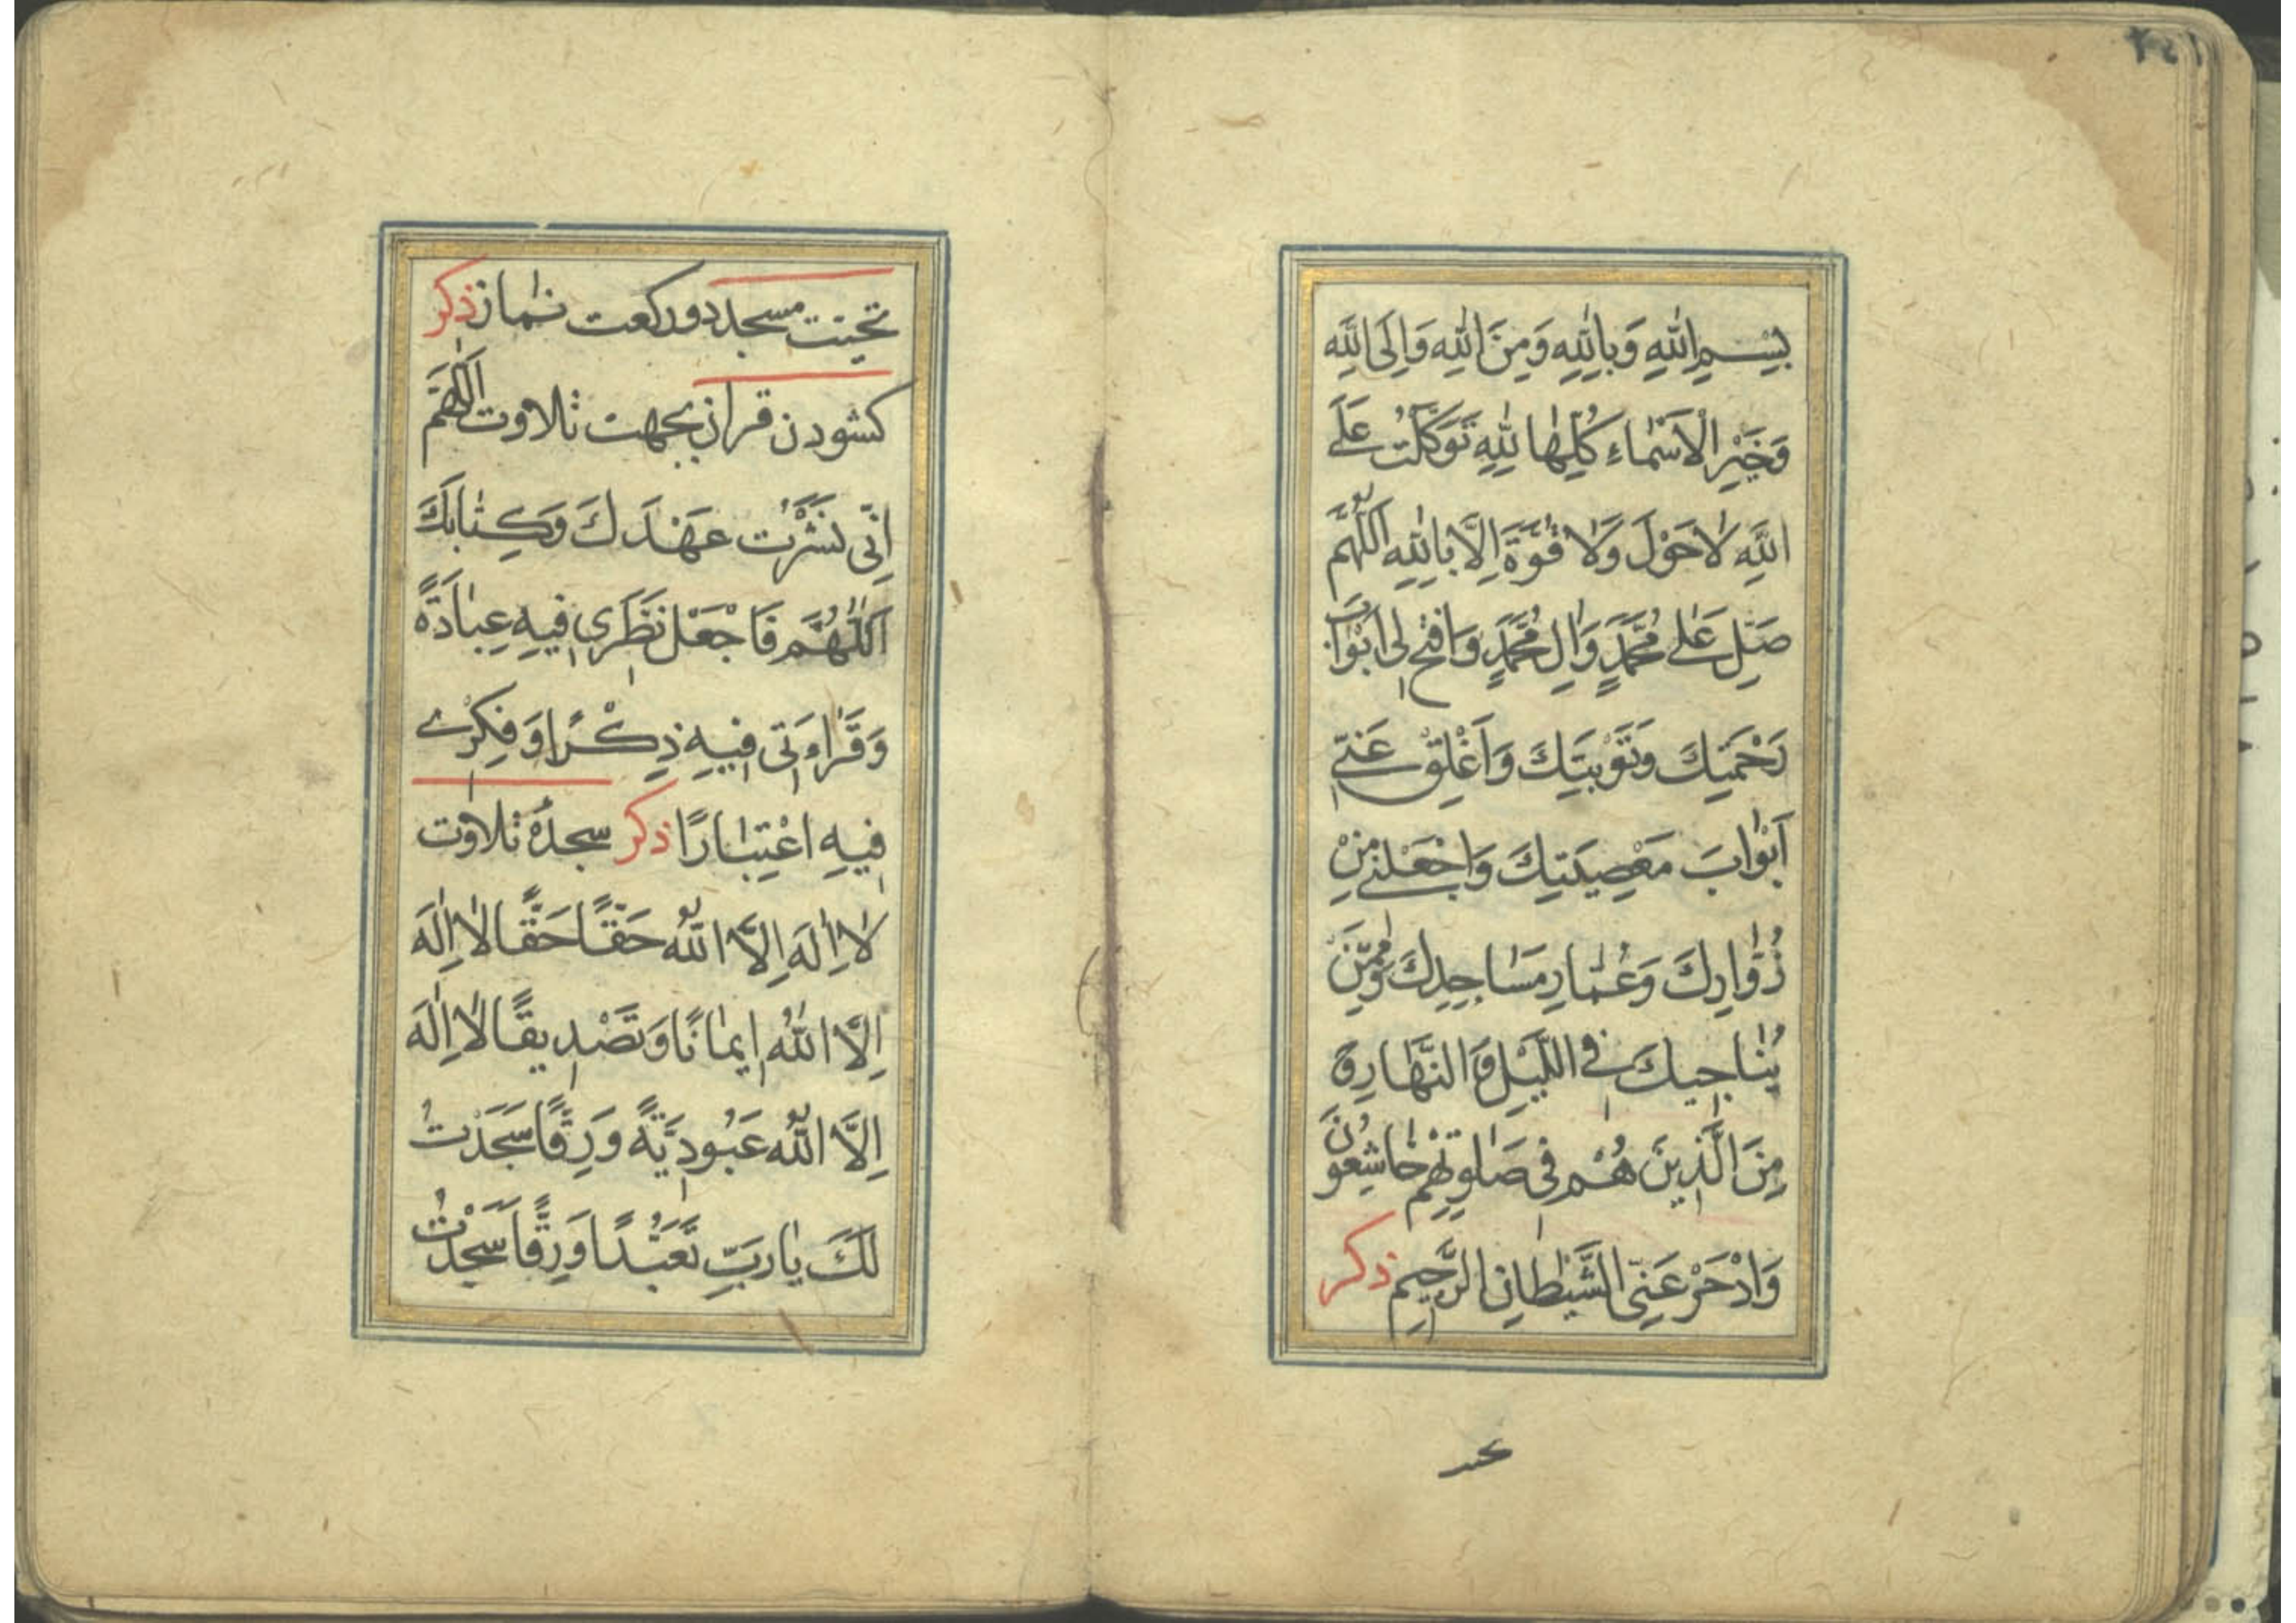 بِسْمِ اللّٰهِ وَبِاللّٰهِ وَمِنَ اللّٰهِ وَاِلَى اللّٰهِ
وَخَيْرِ الْاَسْمٰاءِ كُلِّهٰا لِلّٰهِ تَوَكَّلْتُ عَلَى
اللّٰهِ لاٰحَوْلَ وَلاٰ قُوَّةَ اِلَّا بِاللّٰهِ اَللّٰهُمَّ
صَلِّ عَلٰى مُحَمَّدٍ وَاٰلِ مُحَمَّدٍ وَافْتَحْ لى اَبْوٰابَ
رَحْمَتِكَ وَتَوْبَتِكَ وَاَغْلِقْ عَنّى
اَبْوٰابَ مَعْصِيَتِكَ وَاجْعَلْنى مِنْ
زُوّٰارِكَ وَعُمّٰارِ مَسٰاجِدِكَ وَمِمَّنْ
يُنٰاجيكَ فى اللَّيْلِ وَالنَّهٰارِ وَ
مِنَ الَّذينَ هُمْ فى صَلٰوتِهِمْ خٰاشِعُونَ
وَادْحَرْ عَنِّى الشَّيْطٰانِ الرَّجيمِ ذكر
تحيت مسجد دوركعت نماز ذكر
كشودن قران بجهت تلاوت اَللّٰهُمَّ
اِنّى نَشَرْتُ عَهْدَكَ وَكِتٰابَكَ
اَللّٰهُمَّ فَاجْعَلْ نَظَرى فيهِ عِبٰادَةً
وَقَرٰاءَتى فيهِ ذِكْرًا وَفِكْرى
فيهِ اعْتِبٰارًا ذكر سجدهٔ تلاوت
لاٰاِلٰهَ اِلَّا اللّٰهُ حَقًّا حَقًّا لاٰ اِلٰهَ
اِلَّا اللّٰهُ ايمٰانًا وَتَصْديقًا لاٰ اِلٰهَ
اِلَّا اللّٰهُ عَبُودِيَّةً وَرِقًّا سَجَدْتُ
لَكَ يٰا رَبِّ تَعَبُّدًا وَرِقًّا سَجَدْتُ